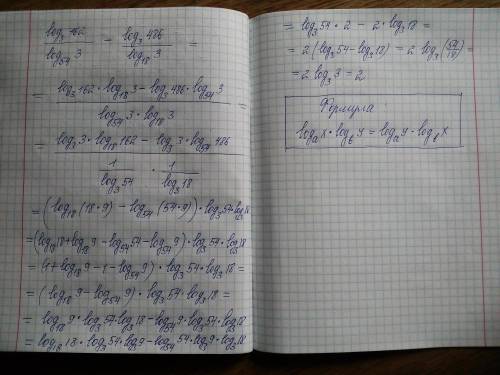 log₃162 / log₅₄3 - log₃486 / log₁₈3 =
= (log₃162 · log₁₈3 - log₃486 · log₅₄3) / (log₅₄3 · log₁₈3) =
= (log₃3 · log₁₈162 - log₃3 · log₅₄486) / (1/log₃54 · 1/log₃18) =
= (log₁₈(18·9) - log₅₄(54·9)) · log₃54 log₃18
= (log₁₈18 + log₁₈9 - log₅₄54 - log₅₄9) · log₃54 · log₃18
= (1 + log₁₈9 - 1 - log₅₄9) · log₃54 · log₃18 =
= (log₁₈9 - log₅₄9) · log₃54 · log₃18 =
= log₁₈9 · log₃54 · log₃18 - log₅₄9 · log₃54 · log₃18
= log₁₈18 · log₃54 · log₃9 - log₅₄54 · log₃9 · log₃18
= log₃54 · 2 - 2 · log₃18 =
= 2(log₃54 - log₃18) = 2 · log₃(54/18) =
= 2 · log₃3 = 2
Формула
logₐx · log_b y = logₐy · log_b x